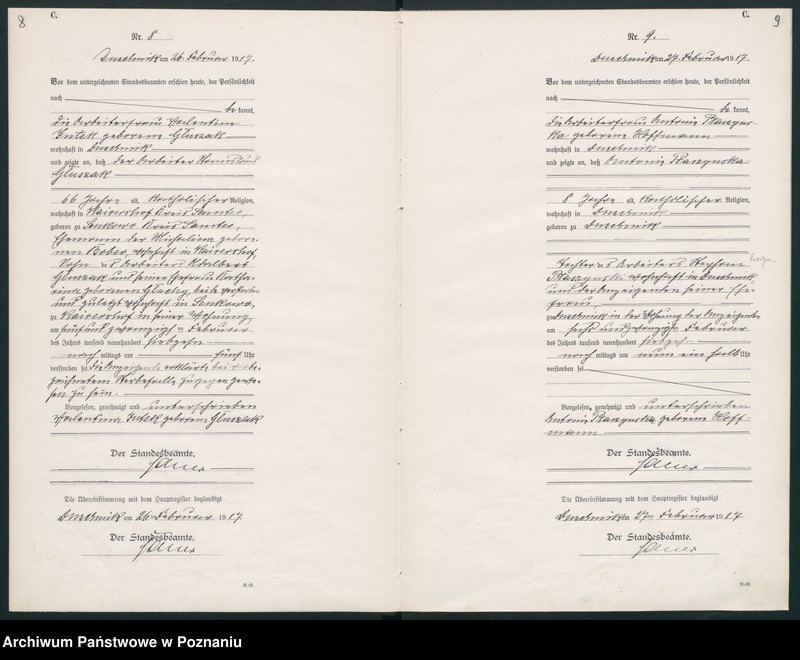 8
C.
Nr. 8
Duschnik am 26. Februar 1917.
Vor dem unterzeichneten Standesbeamten erschien heute, der Persönlichkeit
nach
be kannt,
die Arbeiterfrau Valentina
Intek geborene Gluszak
wohnhaft in Duschnik
und zeigte an, daß der Arbeiter
Gluszak
66 Jahre alt, katholischer Religion,
wohnhaft in Kaisershof Kreis Samter,
geboren zu Senkowo Kreis Samter,
Ehemann der Michalina gebore-
nen Bober, wohnhaft in Kaisershof,
Sohn des Arbeiters Adalbert
Gluszak und seiner Ehefrau Katha-
rina geborenen beide verstorben
und zuletzt wohnhaft in Senkowo,
zu Kaisershof in seiner Wohnung,
am fünfundzwanzigsten Februar
des Jahres tausend neunhundert siebzehn
nach mittags um fünf Uhr
verstorben sei. Die Anzeigende erklärte, bei vorbe-
zeichnetem Sterbefalle zugegen gewe-
sen zu sein.
Vorgelesen, genehmigt und unterschrieben
Valentina Intek geborene Gluszak
Der Standesbeamte.
Die Übereinstimmung mit dem Hauptregister beglaubigt
Duschnik am 26. Februar 1917
Der Standesbeamte.
C.
9
Nr. 9.
Duschnik am 27. Februar 1917.
Vor dem unterzeichneten Standesbeamten erschien heute, der Persönlichkeit
nach
be kannt,
die Arbeiterfrau Antonie Ptaszyns-
ka geborene Hoffmann
wohnhaft in Duschnik
und zeigte an, daß Antonie Ptaszynska
8 Jahre alt, katholischer Religion,
wohnhaft in Duschnik
geboren zu Duschnik
Tochter des Arbeiters Stephan
Ptaszynski wohnhaft in Duschnik
und der Anzeigenden seiner Ehe-
frau,
zu Duschnik in der Wohnung der Anzeigenden
am sechsundzwanzigsten Februar
des Jahres tausend neunhundert siebzehn
nach mittags um neun ein halb Uhr
verstorben sei.
Vorgelesen, genehmigt und unterschrieben
Antonie Ptaszynska geborene Hoff-
mann
Der Standesbeamte.
Die Übereinstimmung mit dem Hauptregister beglaubigt
Duschnik am 27. Februar 1917
Der Standesbeamte.
Archiwum Państwowe w Poznaniu